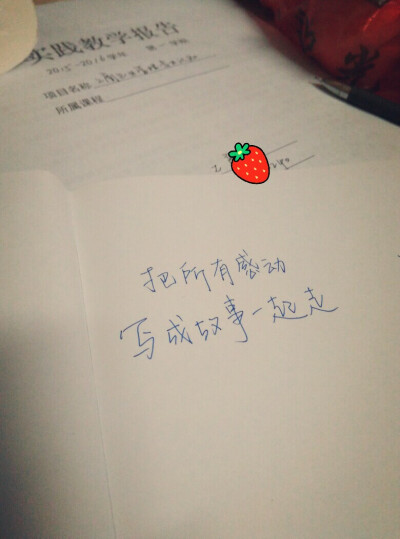 实践教学报告
2015-2016学年 第一学期
项目名称
所属课程
把所有感动
写成故事一起走